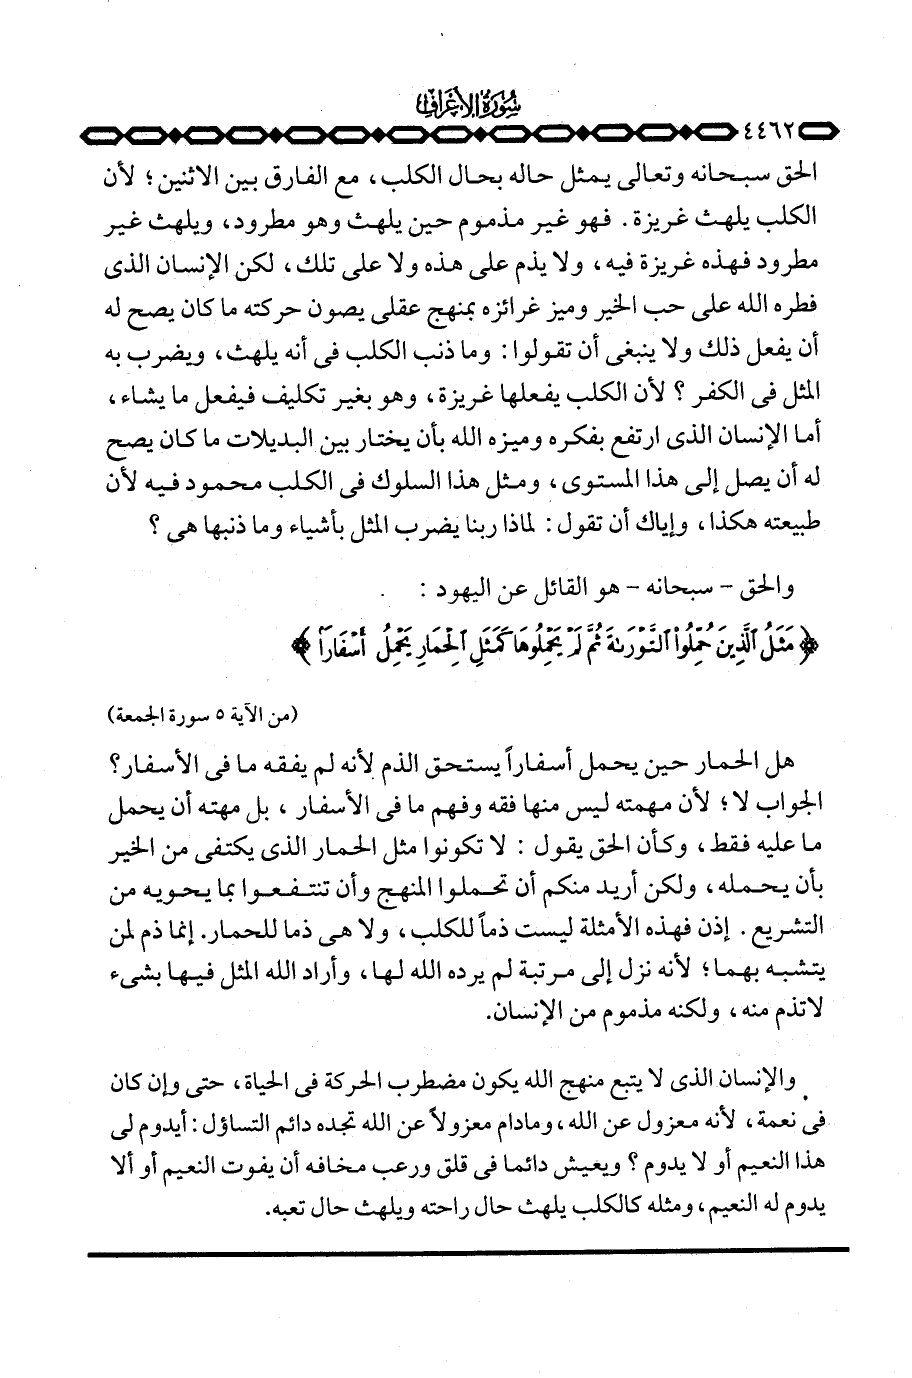 سورة الأعراف
٤٤٦٢
الحق سبحانه وتعالى يمثل حاله بحال الكلب، مع الفارق بين الاثنين؛ لأن
الكلب يلهث غريزة. فهو غير مذموم حين يلهث وهو مطرود، ويلهث غير
مطرود فهذه غريزة فيه، ولا يذم على هذه ولا على تلك، لكن الإنسان الذى
فطره الله على حب الخير وميز غرائزه بمنهج عقلى يصون حركته ما كان يصح له
أن يفعل ذلك ولا ينبغى أن تقولوا: وما ذنب الكلب فى أنه يلهث، ويضرب به
المثل فى الكفر؟ لأن الكلب يفعلها غريزة، وهو بغير تكليف فيفعل ما يشاء،
أما الإنسان الذى ارتفع بفكره وميزه الله بأن يختار بين البديلات ما كان يصح
له أن يصل إلى هذا المستوى، ومثل هذا السلوك فى الكلب محمود فيه لأن
طبيعته هكذا، وإياك أن تقول: لماذا ربنا يضرب المثل بأشياء وما ذنبها هى؟
والحق - سبحانه - هو القائل عن اليهود :
﴿مَثَلُ ٱلَّذِينَ حُمِّلُوا۟ ٱلتَّوْرَىٰةَ ثُمَّ لَمْ يَحْمِلُوهَا كَمَثَلِ ٱلْحِمَارِ يَحْمِلُ أَسْفَارًا﴾
(من الآية ٥ سورة الجمعة)
هل الحمار حين يحمل أسفاراً يستحق الذم لأنه لم يفقه ما فى الأسفار؟
الجواب لا؛ لأن مهمته ليس منها فقه وفهم ما فى الأسفار ، بل مهته أن يحمل
ما عليه فقط، وكأن الحق يقول : لا تكونوا مثل الحمار الذى يكتفى من الخير
بأن يحمله، ولكن أريد منكم أن تحملوا المنهج وأن تنتفعوا بما يحويه من
التشريع. إذن فهذه الأمثلة ليست ذماً للكلب، ولا هى ذما للحمار. إنما ذم لمن
يتشبه بهما؛ لأنه نزل إلى مرتبة لم يرده الله لها، وأراد الله المثل فيها بشىء
لاتذم منه، ولكنه مذموم من الإنسان.
والإنسان الذى لا يتبع منهج الله يكون مضطرب الحركة فى الحياة، حتى وإن كان
فى نعمة، لأنه معزول عن الله، ومادام معزولاً عن الله تجده دائم التساؤل: أيدوم لى
هذا النعيم أو لا يدوم؟ ويعيش دائما فى قلق ورعب مخافه أن يفوت النعيم أو ألا
يدوم له النعيم، ومثله كالكلب يلهث حال راحته ويلهث حال تعبه.